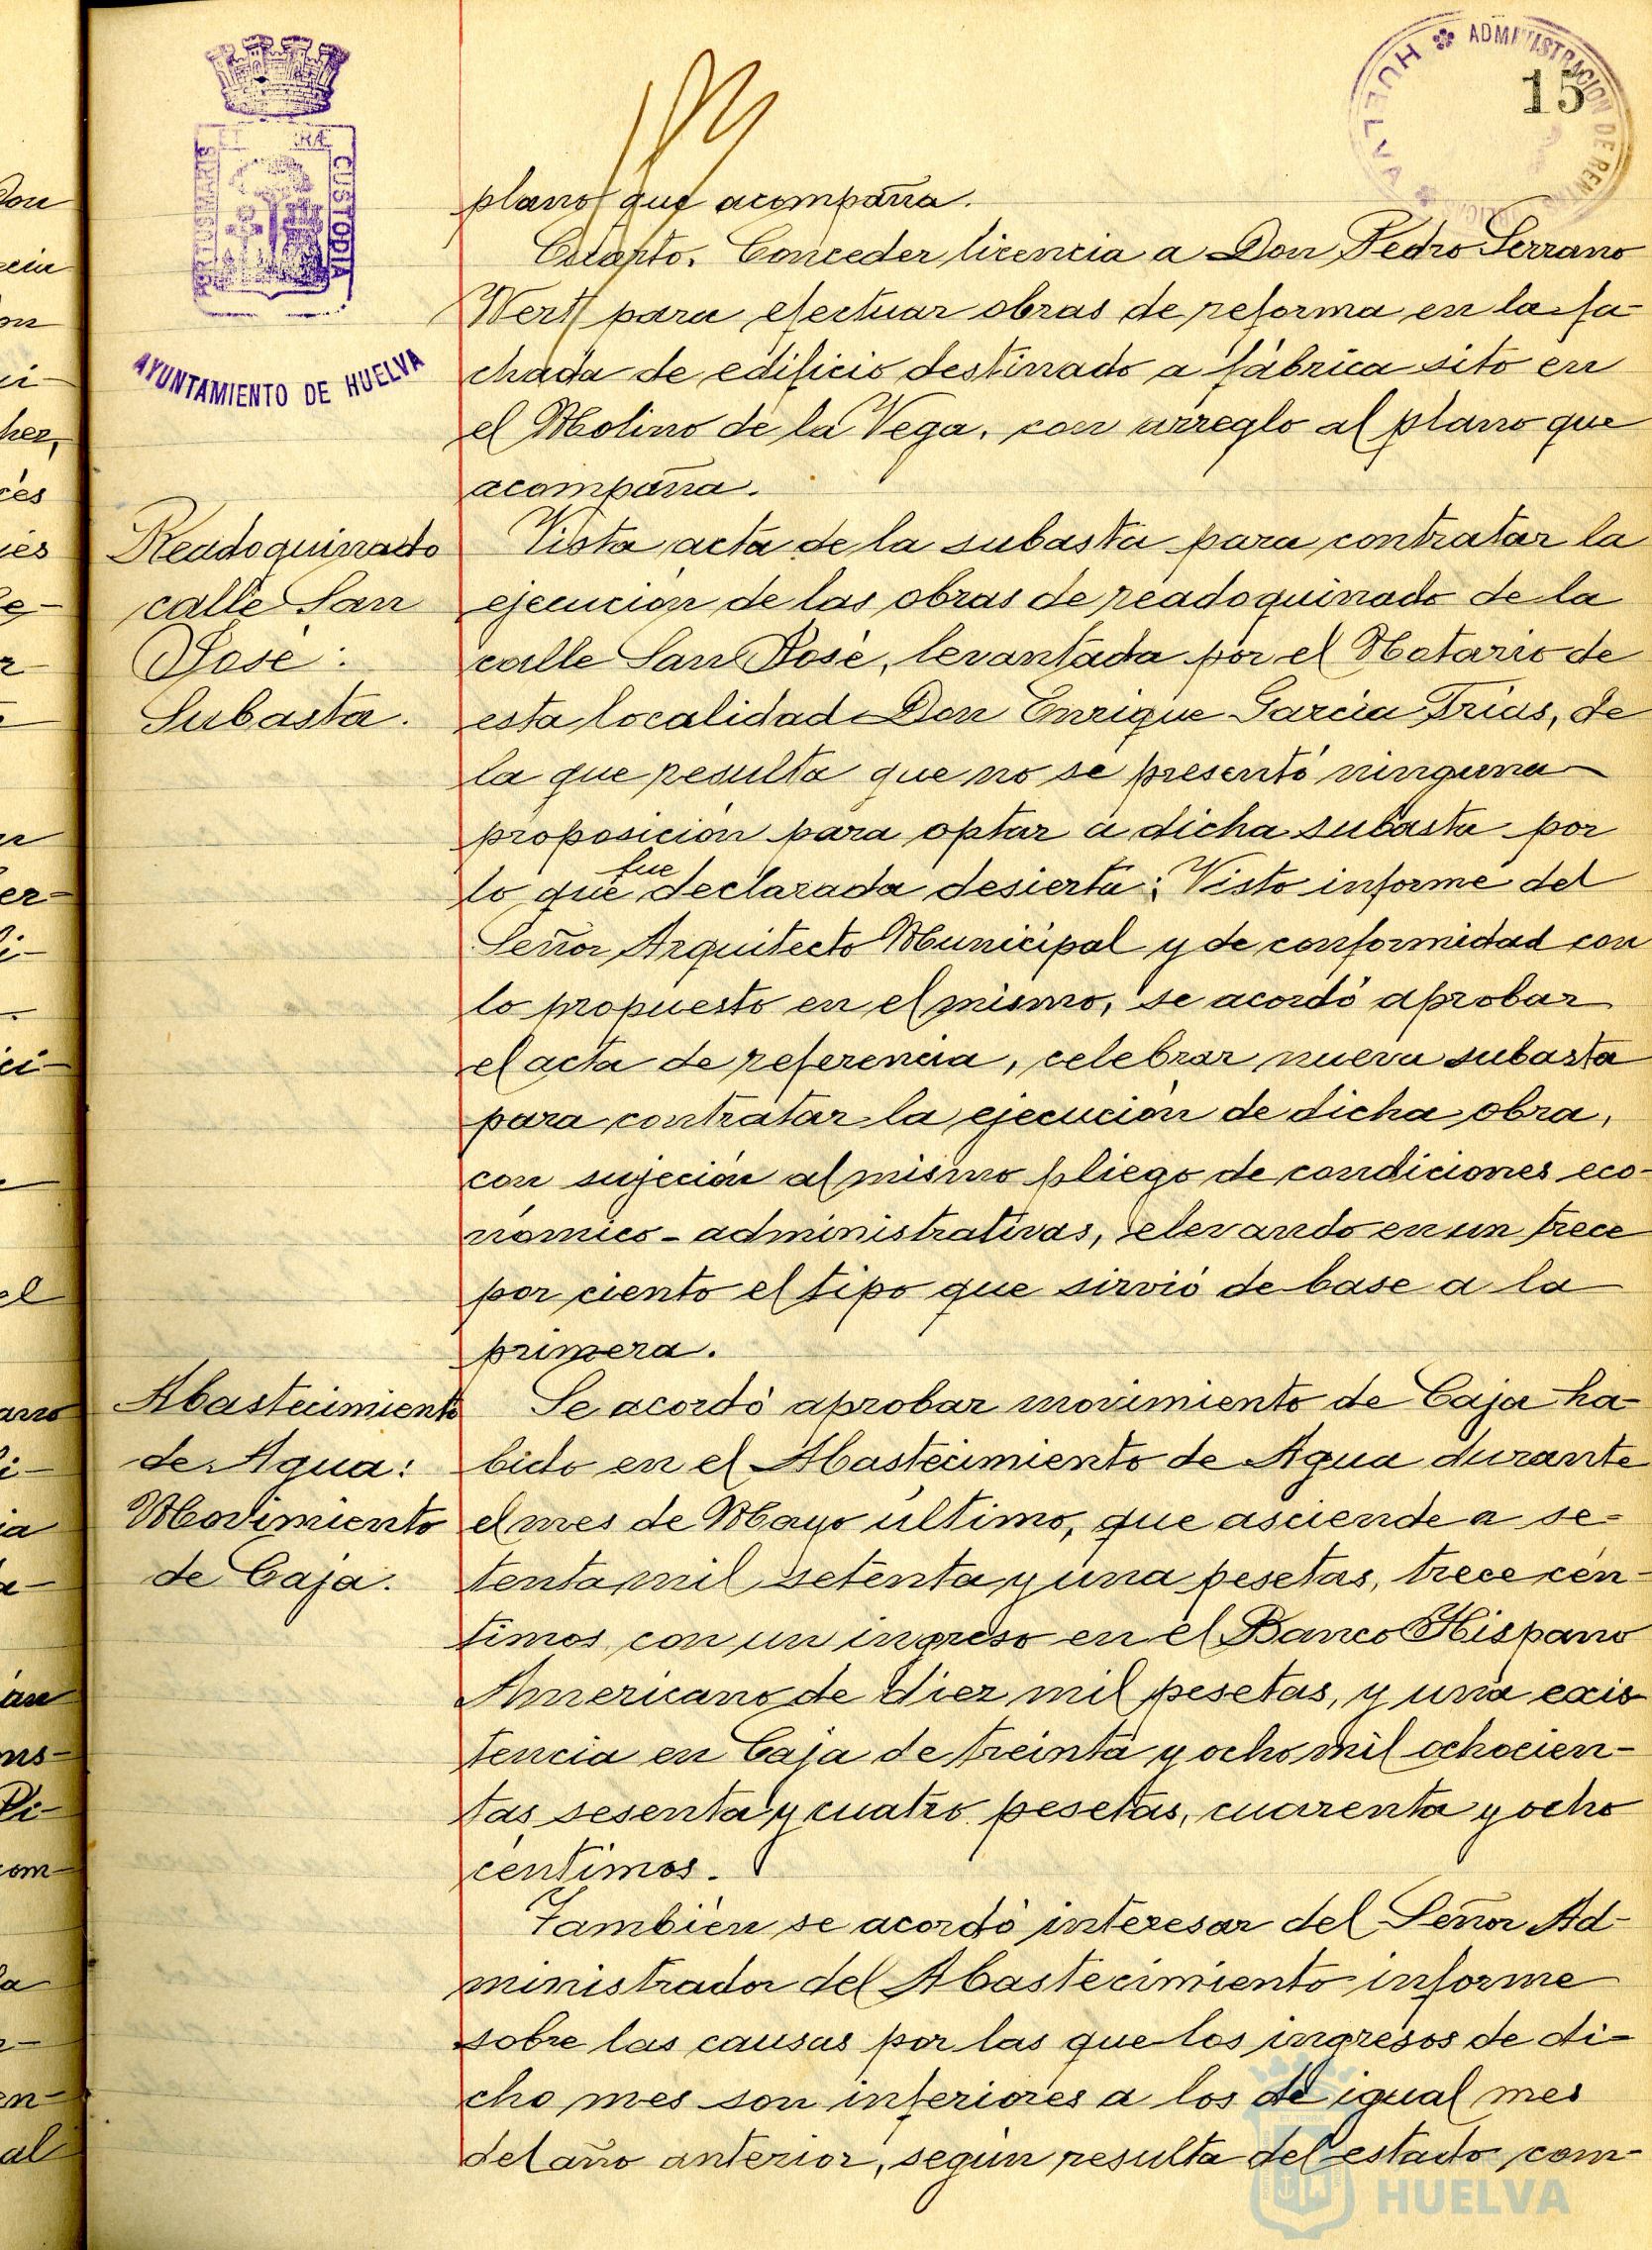 ADMINISTRACION DE RENTAS
HUELVA
15
PORTUS MARIS ET TERRÆ CUSTODIA
AYUNTAMIENTO DE HUELVA
plano que acompaña.
Cuarto. Conceder licencia a Don Pedro Serrano
Wert para efectuar obras de reforma en la fa-
chada de edificio destinado a fábrica sito en
el Molino de la Vega, con arreglo al plano que
acompaña.
Readoquinado
calle San
José:
Subasta.
Vista acta de la subasta para contratar la
ejecución de las obras de readoquinado de la
calle San José, levantada por el Notario de
esta localidad Don Enrique García Frías, de
la que resulta que no se presentó ninguna
proposición para optar a dicha subasta por
lo que fue declarada desierta: Visto informe del
Señor Arquitecto Municipal y de conformidad con
lo propuesto en el mismo, se acordó aprobar
el acta de referencia, celebrar nueva subasta
para contratar la ejecución de dicha obra,
con sujeción al mismo pliego de condiciones eco-
nómico-administrativas, elevando en un trece
por ciento el tipo que sirvió de base a la
primera.
Abastecimiento
de Agua:
Movimiento
de Caja.
Se acordó aprobar movimiento de Caja ha-
bido en el Abastecimiento de Agua durante
el mes de Mayo último, que asciende a se-
tenta mil setenta y una pesetas, trece cén-
timos con un ingreso en el Banco Hispano
Americano de diez mil pesetas, y una exis-
tencia en Caja de treinta y ocho mil ochocien-
tas sesenta y cuatro pesetas, cuarenta y ocho
céntimos.
También se acordó interesar del Señor Ad-
ministrador del Abastecimiento informe
sobre las causas por las que los ingresos de di-
cho mes son inferiores a los de igual mes
del año anterior, según resulta del estado com-
HUELVA